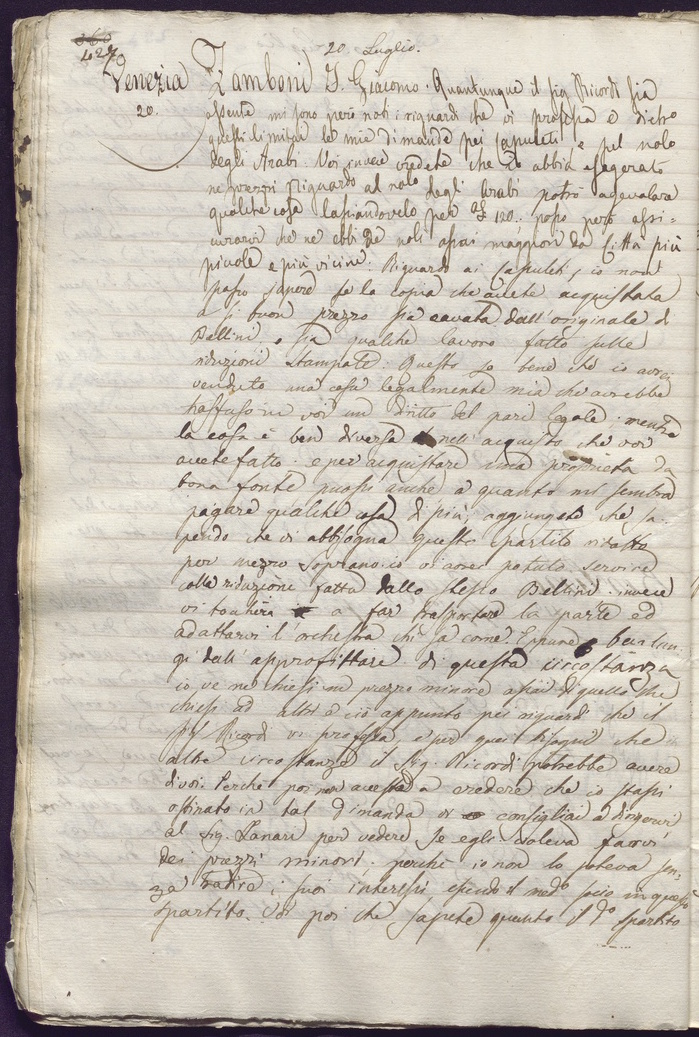 20. Luglio.
427
Venezia Zamboni S. Giacomo. Quantunque il sig. Ricordi sia
20. assente mi sono però noti i riguardi che vi professa e dietro
questi limitai le mie dimande pei Capuleti, e pel nolo
degli Arabi. Voi invece credete che io abbia esagerato
ne' prezzi. Riguardo al nolo degli Arabi potrò agevolare
qualche cosa lasciandovelo per 120. posso però assi=
curarvi che ne ebbi de' noli assai maggiori da Città più
piccole e più vicine. Riguardo ai Capuleti, io non
posso sapere se la copia che avete acquistata
a sì buon prezzo sia cavata dall'originale di
Bellini, o sia qualche lavoro fatto sulle
riduzioni stampate. Questo so bene che io avrei
venduto una cosa legalmente mia che avrebbe
trasfuso in voi un dritto del pari legale; mentre
la cosa è ben diversa nell'acquisto che voi
avete fatto. e per acquistare una proprietà da
bona fonte puossi anche a quanto mi sembra
pagare qualche cosa di più; aggiungete che sa=
pendo che vi abbisogna questo spartito ridotto
per mezzo Soprano io vi avrei potuto servire
colla riduzione fatta dallo stesso Bellini. invece
vi toccherà a far trasportare la parte ed
adattarvi l'orchestra chi sa come. Eppure ben lun=
gi dall'approfittare di questa circostanza
io ve ne chiesi un prezzo minore assai di quello che
chiesi ad altri e ciò appunto pei riguardi che il
sig.r Ricordi vi professa e per quei bisogni che
altre circostanze il Sig. Ricordi potrebbe avere
di voi. Perchè poi non aveste a credere che io stassi
ostinato in tal dimanda vi consigliai a dirigervi
al Sig. Lanari per vedere se egli voleva farvi
dei prezzi minori. perchè io non lo poteva sen=
za tradire i suoi interessi essendo il med.o socio in questo
spartito. Voi poi che sapete quanto il d.o spartito